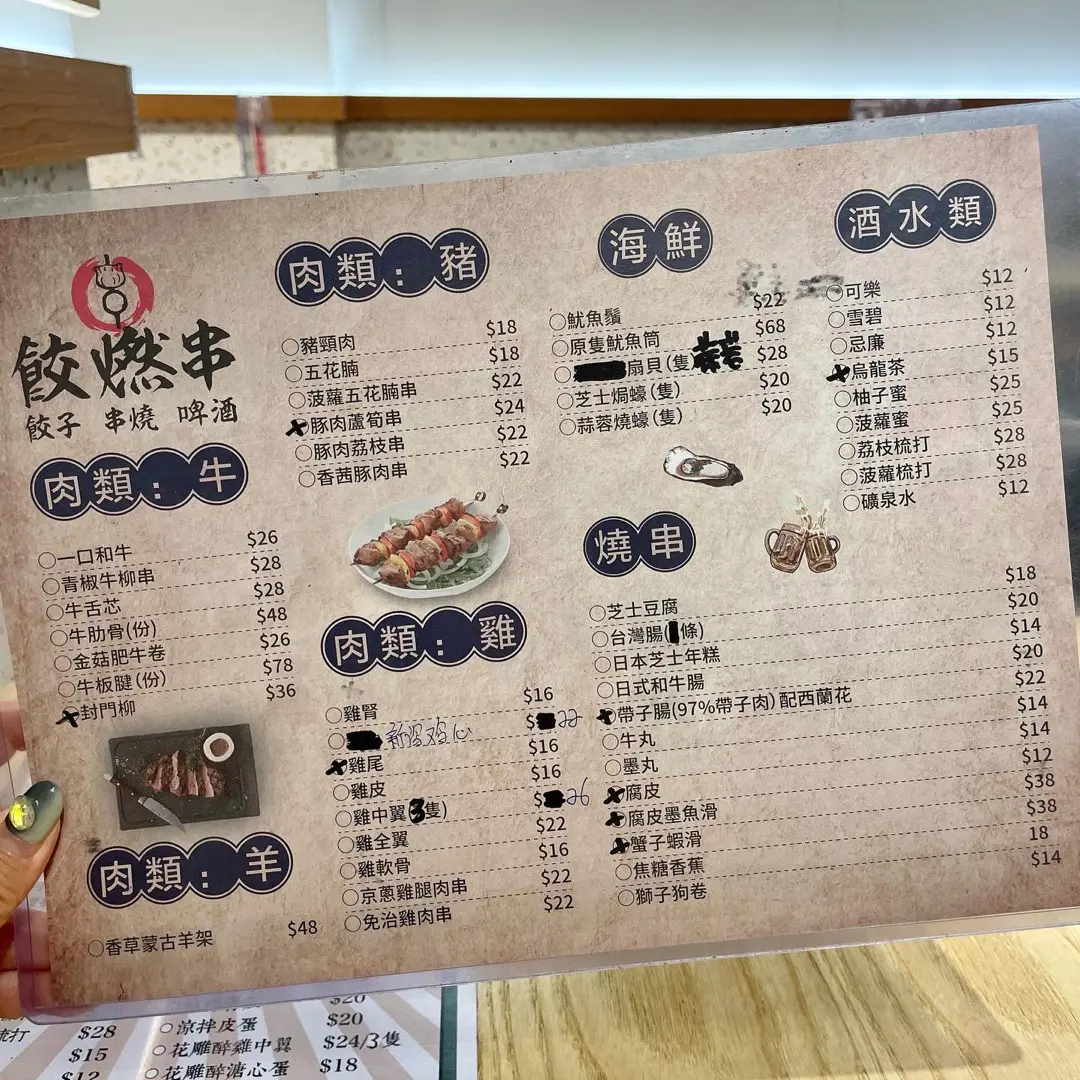 餃燃串
餃子 串燒 啤酒
肉類：牛
一口和牛 $26
青椒牛柳串 $28
牛舌芯 $28
牛肋骨(份) $48
金菇肥牛卷 $26
牛板腱(份) $78
封門柳 $36
肉類：羊
香草蒙古羊架 $48
肉類：豬
豬頸肉 $18
五花腩 $18
菠蘿五花腩串 $22
豚肉蘆筍串 $24
豚肉荔枝串 $22
香茜豚肉串 $22
肉類：雞
雞腎 $16
鸡心 $22
雞尾 $16
雞皮 $16
雞中翼3隻) $26
雞全翼 $22
雞軟骨 $16
京蔥雞腿肉串 $22
免治雞肉串 $22
海鮮
魷魚鬚 $22
原隻魷魚筒 $68
扇貝(隻 $28
芝士焗蠔(隻) $20
蒜蓉燒蠔(隻) $20
燒串
芝士豆腐 $18
台灣腸(條) $20
日本芝士年糕 $14
日式和牛腸 $20
帶子腸(97%帶子肉)配西蘭花 $22
牛丸 $14
墨丸 $14
腐皮 $12
腐皮墨魚滑 $38
蟹子蝦滑 $38
焦糖香蕉 18
獅子狗卷 $14
酒水類
可樂 $12
雪碧 $12
忌廉 $12
烏龍茶 $15
柚子蜜 $25
菠蘿蜜 $25
荔枝梳打 $28
菠蘿梳打 $28
礦泉水 $12
梳打 $28
$15
$12
$20
涼拌皮蛋 $20
花雕醉雞中翼 $24/3隻
花雕醉溏心蛋 $18